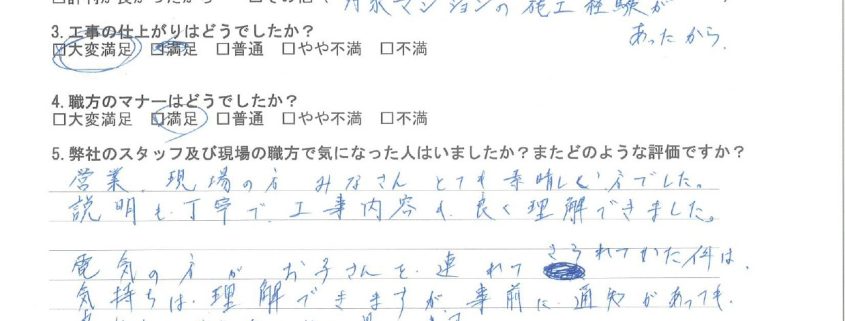 月京マンションの施工経験が
あったから。
3.工事の仕上がりはどうでしたか？
☑大変満足 □満足 □普通 □やや不満 □不満
4.職方のマナーはどうでしたか？
□大変満足 ☑満足 □普通 □やや不満 □不満
5.弊社のスタッフ及び現場の職方で気になった人はいましたか？またどのような評価ですか？
営業、現場の方 みなさん とても素晴しい方でした。
説明も丁寧で、工事内容も良く理解できました。
電気の方が お子さんを連れて こられていた件は、
気持ちは理解できますが、事前に通知があっても、